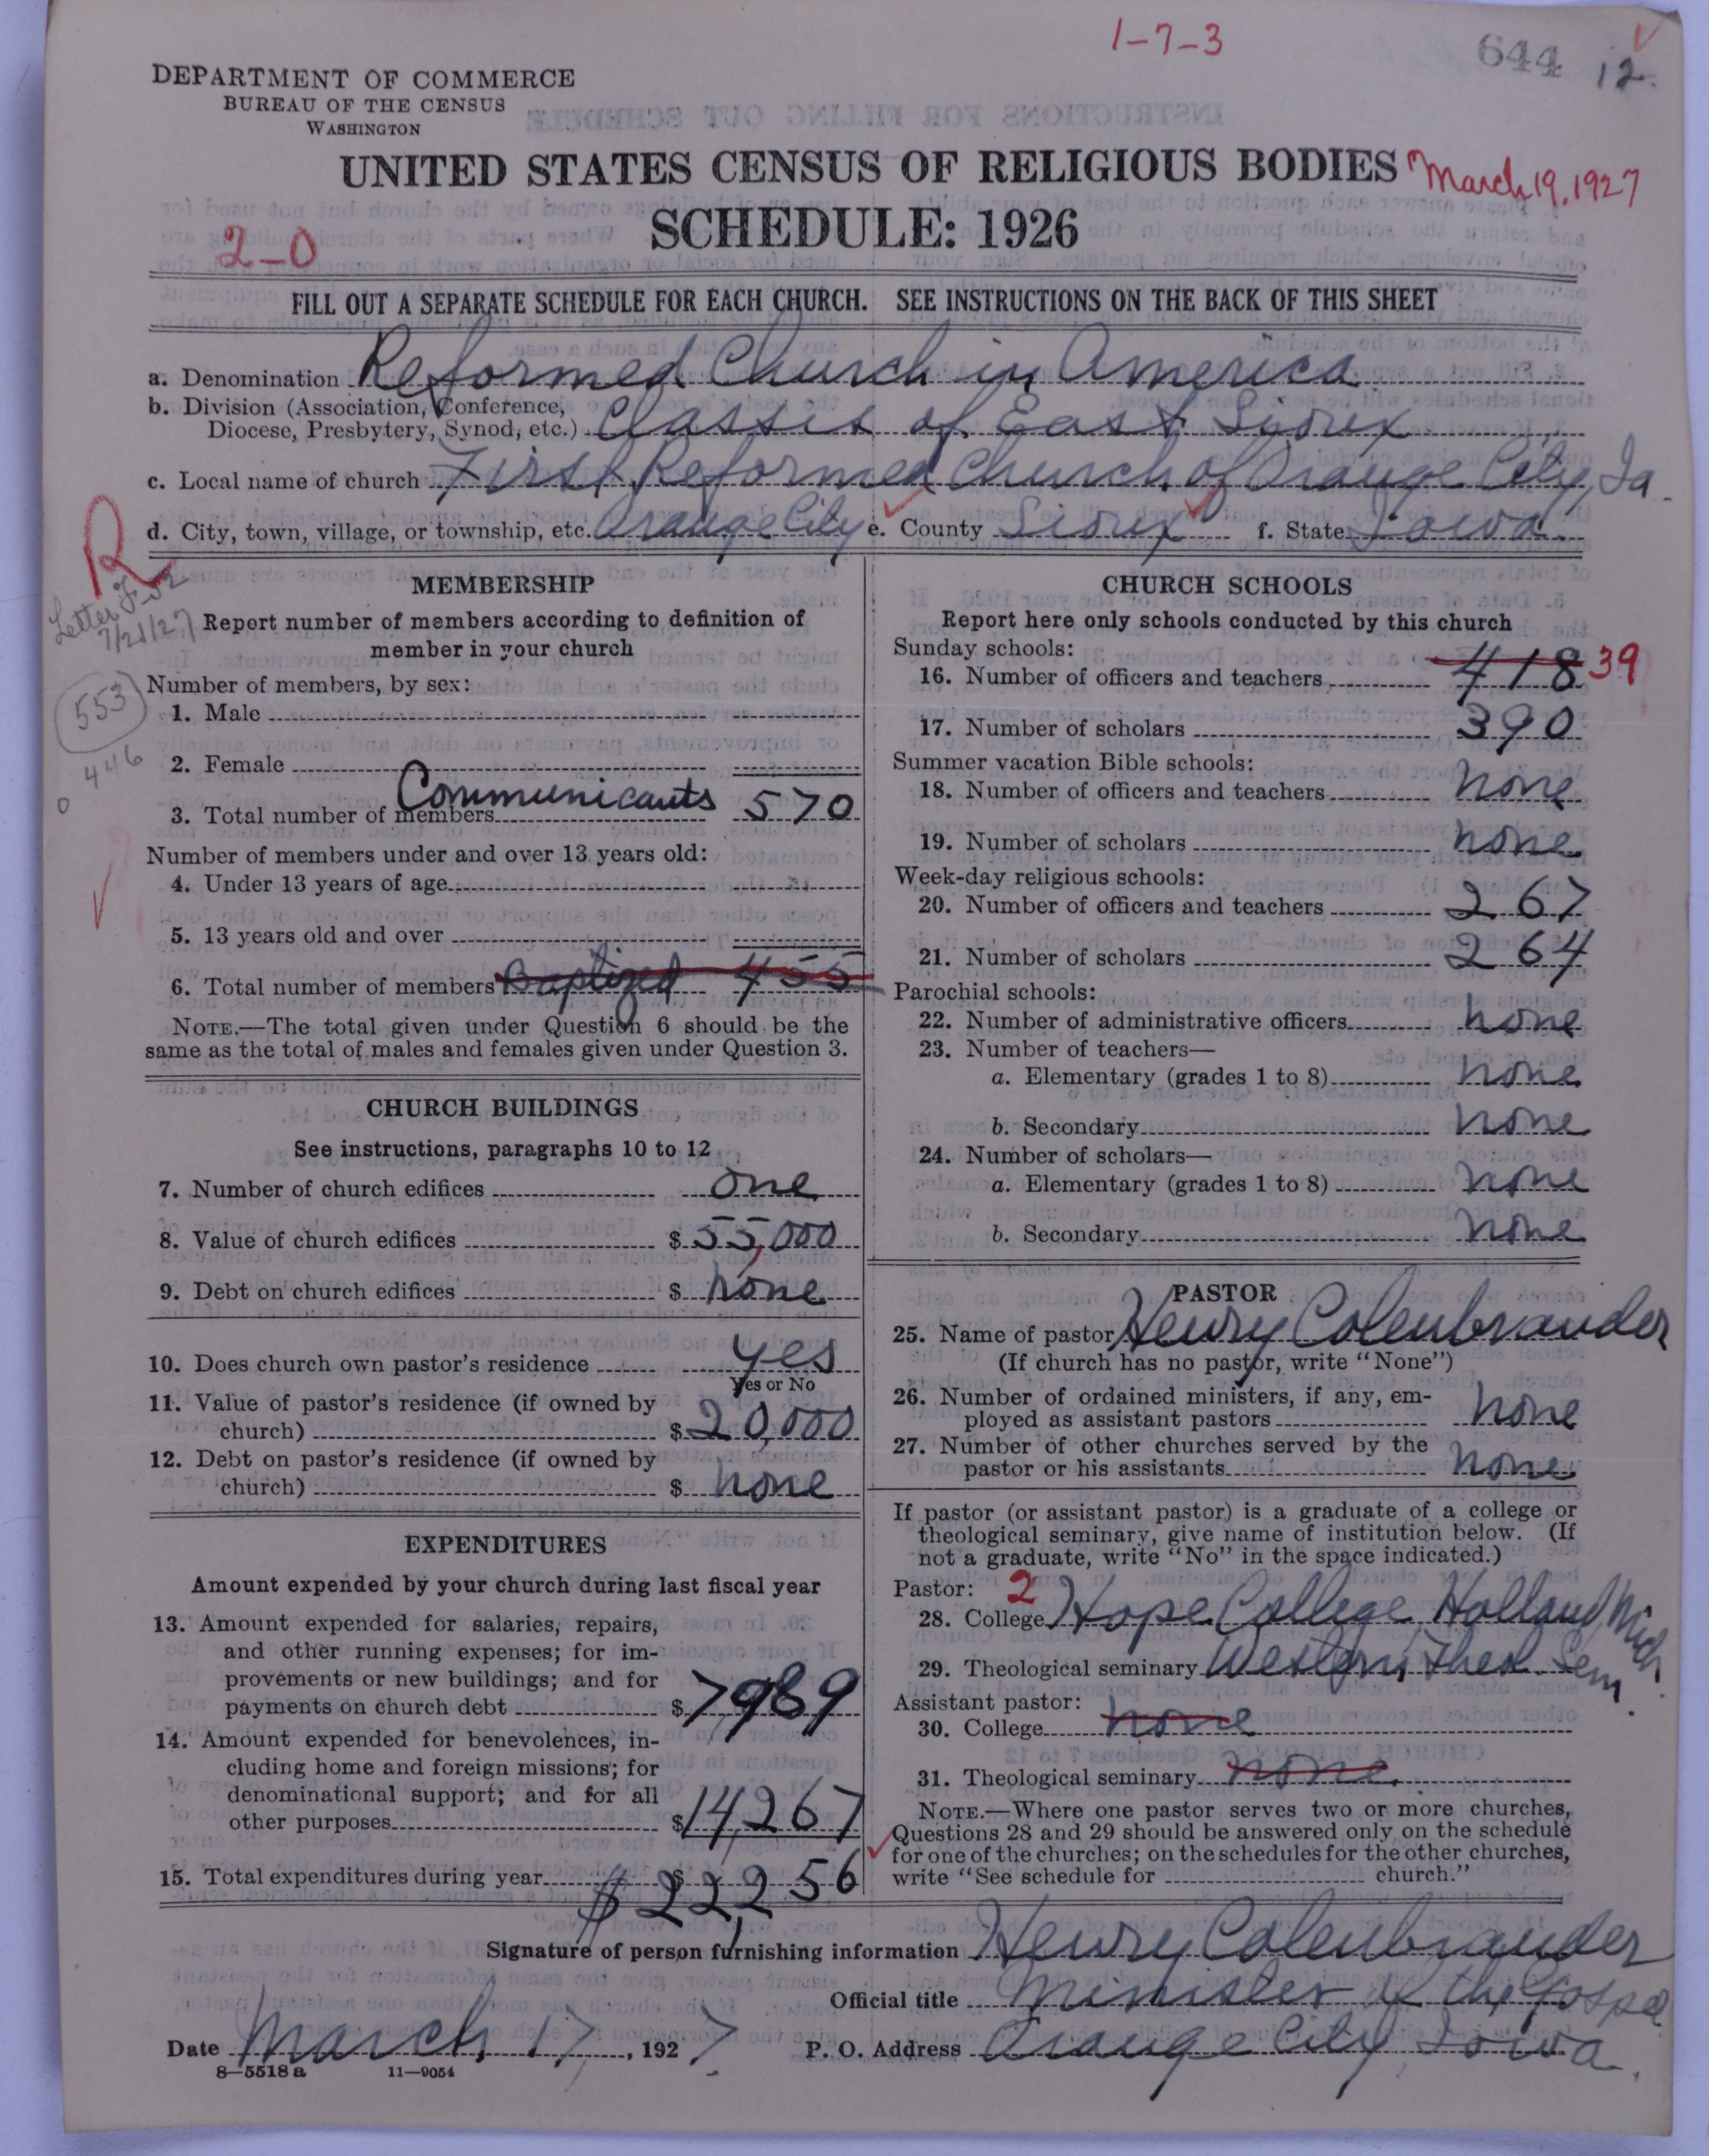 1-7-3
644 12.
DEPARTMENT OF COMMERCE
BUREAU OF THE CENSUS
WASHINGTON
UNITED STATES CENSUS OF RELIGIOUS BODIES March 19, 1927
SCHEDULE: 1926
2-0
FILL OUT A SEPARATE SCHEDULE FOR EACH CHURCH. SEE INSTRUCTIONS ON THE BACK OF THIS SHEET
a. Denomination Reformed Church in America
b. Division (Association, Conference,
Diocese, Presbytery, Synod, etc.) Classis of East Sioux
c. Local name of church First Reformed Church of Orange City, Ia.
d. City, town, village, or township, etc. Orange City e. County Sioux f. State Iowa.
R
Letter F-52
7/21/27
553
446
0
MEMBERSHIP
Report number of members according to definition of
member in your church
Number of members, by sex:
1. Male
2. Female
3. Total number of members Communicants 570
Number of members under and over 13 years old:
4. Under 13 years of age
5. 13 years old and over
6. Total number of members Baptized 455
NOTE.—The total given under Question 6 should be the
same as the total of males and females given under Question 3.
CHURCH BUILDINGS
See instructions, paragraphs 10 to 12
7. Number of church edifices one
8. Value of church edifices $ 55,000
9. Debt on church edifices $ none
10. Does church own pastor's residence yes
Yes or No
11. Value of pastor's residence (if owned by
church) $ 20,000
12. Debt on pastor's residence (if owned by
church) $ none
EXPENDITURES
Amount expended by your church during last fiscal year
13. Amount expended for salaries, repairs,
and other running expenses; for im-
provements or new buildings; and for
payments on church debt $ 7989
14. Amount expended for benevolences, in-
cluding home and foreign missions; for
denominational support; and for all
other purposes $ 14,267
15. Total expenditures during year $ $22,256
CHURCH SCHOOLS
Report here only schools conducted by this church
Sunday schools:
16. Number of officers and teachers 418 39
17. Number of scholars 390
Summer vacation Bible schools:
18. Number of officers and teachers none
19. Number of scholars none
Week-day religious schools:
20. Number of officers and teachers 267
21. Number of scholars 264
Parochial schools:
22. Number of administrative officers none
23. Number of teachers—
a. Elementary (grades 1 to 8) none
b. Secondary none
24. Number of scholars—
a. Elementary (grades 1 to 8) none
b. Secondary none
PASTOR
25. Name of pastor Henry Colenbrander
(If church has no pastor, write "None")
26. Number of ordained ministers, if any, em-
ployed as assistant pastors none
27. Number of other churches served by the
pastor or his assistants none
If pastor (or assistant pastor) is a graduate of a college or
theological seminary, give name of institution below. (If
not a graduate, write "No" in the space indicated.)
Pastor: 2
28. College Hope College, Holland, Mich.
29. Theological seminary Western Theol. Sem.
Assistant pastor:
30. College none
31. Theological seminary none
NOTE.—Where one pastor serves two or more churches,
Questions 28 and 29 should be answered only on the schedule
for one of the churches; on the schedules for the other churches,
write "See schedule for church."
Signature of person furnishing information Henry Colenbrander
Official title Minister of the Gospel
Date March 17, 1927. P. O. Address Orange City, Iowa.
8—5518 a 11—9054